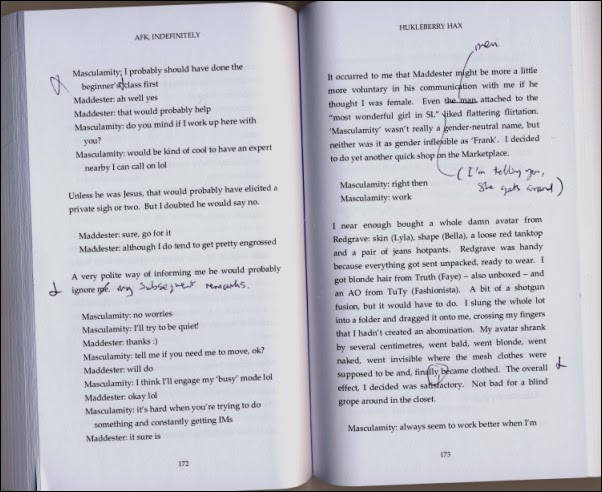 AFK, INDEFINITELY
Masculamity: I probably should have done the
beginner's class first
Maddester: ah well yes
Maddester: that would probably help
Masculamity: do you mind if I work up here with
you?
Masculamity: would be kind of cool to have an expert
nearby I can call on lol
Unless he was Jesus, that would probably have elicited a
private sigh or two. But I doubted he would say no.
Maddester: sure, go for it
Maddester: although I do tend to get pretty engrossed
A very polite way of informing me he would probably
ignore me. my subsequent remarks.
Masculamity: no worries
Masculamity: I'll try to be quiet!
Maddester: thanks :)
Masculamity: tell me if you need me to move, ok?
Maddester: will do
Masculamity: I think I'll engage my 'busy' mode lol
Maddester: okay lol
Masculamity: it's hard when you're trying to do
something and constantly getting IMs
Maddester: it sure is
172
HUKLEBERRY HAX
men
It occurred to me that Maddester might be more a little
more voluntary in his communication with me if he
thought I was female. Even the man attached to the
"most wonderful girl in SL" liked flattering flirtation.
'Masculamity' wasn't really a gender-neutral name, but
neither was it as gender inflexible as 'Frank'. I decided
to do yet another quick shop on the Marketplace.
(I'm telling you,
she gets around)
Masculamity: right then
Masculamity: work
I near enough bought a whole damn avatar from
Redgrave: skin (Lyla), shape (Bella), a loose red tanktop
and a pair of jeans hotpants. Redgrave was handy
because everything got sent unpacked, ready to wear. I
got blonde hair from Truth (Faye) – also unboxed – and
an AO from TuTy (Fashionista). A bit of a shotgun
fusion, but it would have to do. I slung the whole lot
into a folder and dragged it onto me, crossing my fingers
that I hadn't created an abomination. My avatar shrank
by several centimetres, went bald, went blonde, went
naked, went invisible where the mesh clothes were
supposed to be and, finally, became clothed. The overall
effect, I decided was satisfactory. Not bad for a blind
grope around in the closet.
Masculamity: always seem to work better when I'm
173